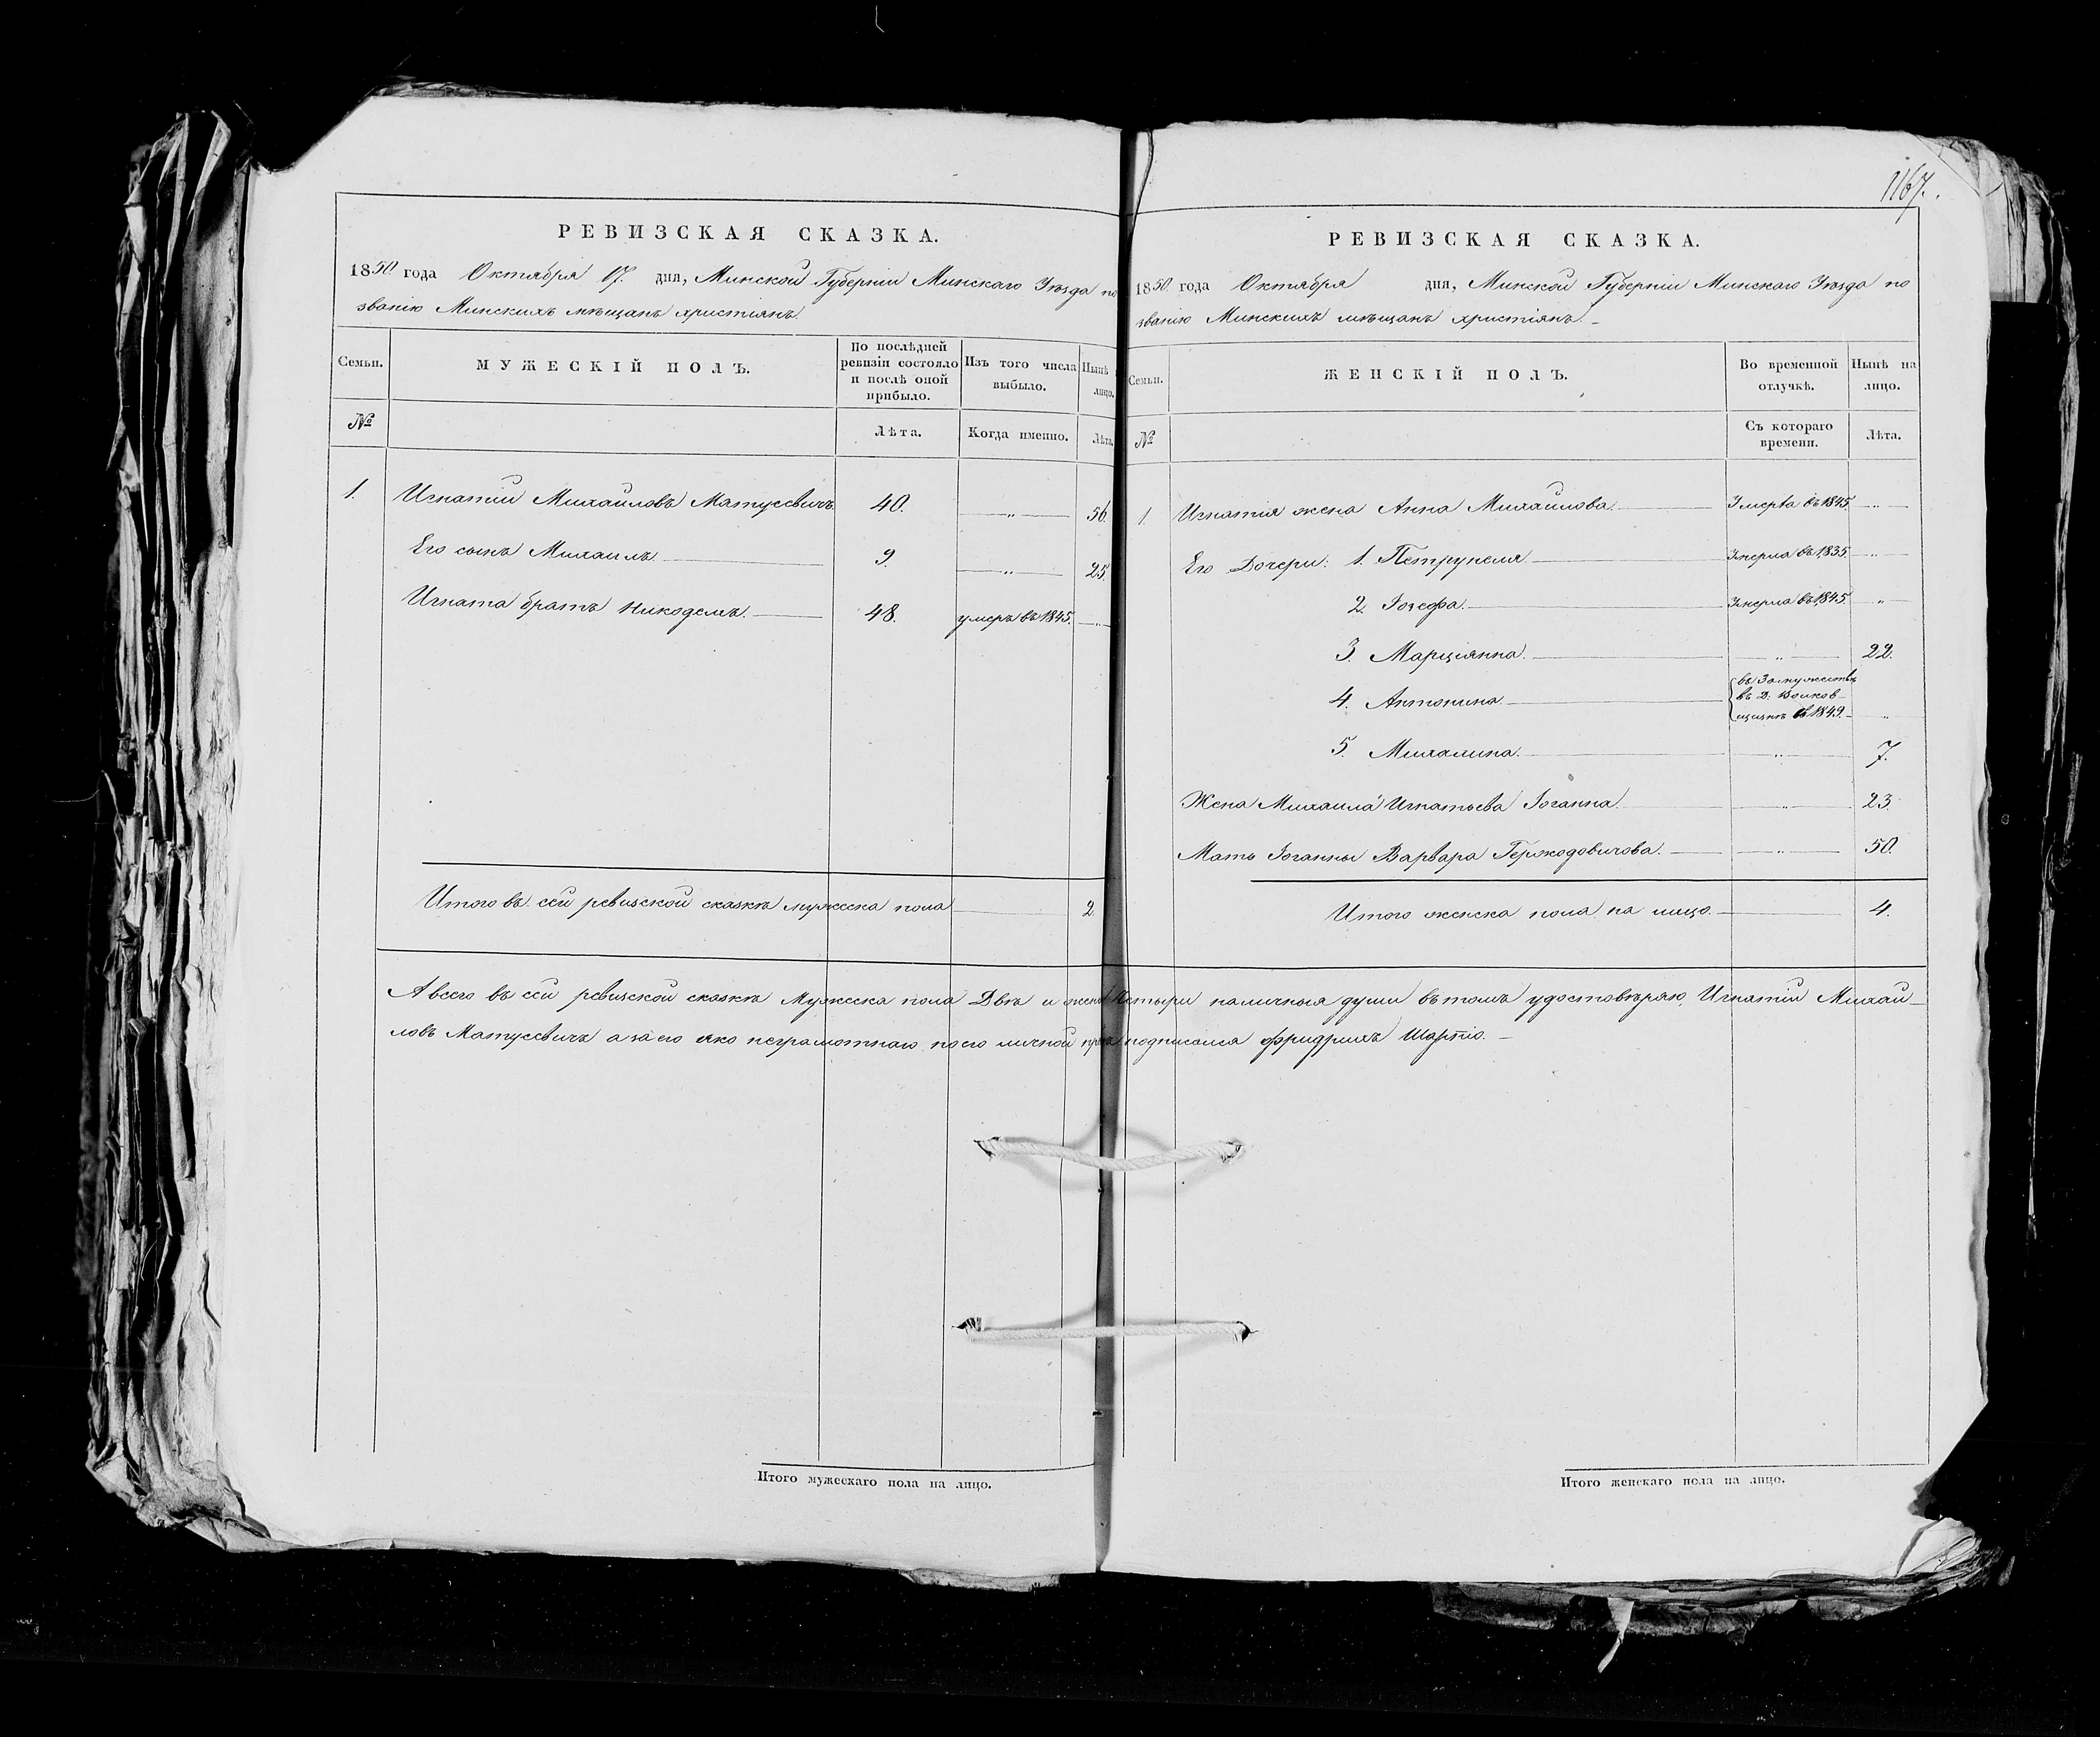 1167.
РЕВИЗСКАЯ СКАЗКА.
1850 года Октября 17. дня, Минской Губерніи Минскаго Уѣзда по
званію Минскихъ мѣщанъ христіянъ
Семьи.
МУЖЕСКІЙ ПОЛЪ.
По послѣдней
ревизіи состояло
и послѣ оной
прибыло.
Изъ того числа
выбыло.
Нынѣ
лицо.
№
Лѣта.
Когда именно.
Лѣта.
1. Игнатій Михайловъ Матусевичъ 40. „ 56.
Его сынъ Михаилъ 9. „ 25.
Игната братъ Никодемъ. 48. умеръ въ 1845. „
Итого въ сей ревизской сказкѣ мужеска пола 2.
РЕВИЗСКАЯ СКАЗКА.
1850 года Октября дня, Минской Губерніи Минскаго Уѣзда по
званію Минскихъ мѣщанъ христіянъ.
Семьи.
ЖЕНСКІЙ ПОЛЪ.
Во временной
отлучкѣ.
Нынѣ на
лицо.
№
Съ котораго
времени.
Лѣта.
1. Игнатія жена Анна Михайлова. Умерла въ 1845 „
Его Дочери: 1. Петрунеля Умерла въ 1835. „
2. Іозефа. Умерла въ 1845. „
3. Марціянна. „ 22.
4. Антонина. въ Замужествѣ
въ Д. Волков-
щизнѣ въ 1849. „
5. Михалина. „ 7.
Жена Михаила Игнатьева Іоганна „ 23.
Мать Іоганны Варвара Гержодовичова. „ 50.
Итого женска пола на лицо. 4.
А всего въ сей ревизской сказкѣ Мужеска пола Двѣ и женска Четыри наличныя души въ томъ удостовѣряю, Игнатій Михай-
ловъ Матусевичъ а за его яко неграмотнаго по его личной подписался Фридрихъ
Итого мужескаго пола на лицо.
Итого женскаго пола на лицо.